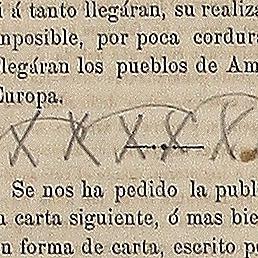 i á tanto llegáran, su realiza
mposible, por poca cordura
llegáran los pueblos de Am
Europa.
X X X X X
Se nos ha pedido la publ
a carta siguiente, ó mas bie
n forma de carta, escrito po